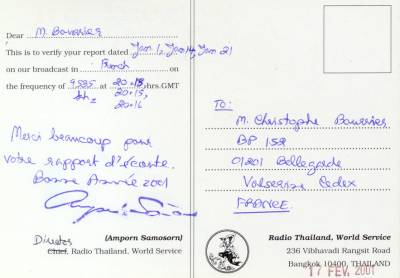 Dear M. Bourrier
This is to verify your report dated Jan 1, Jan 14, Jan 21
on our broadcast in French on
the frequency of 9535 at 20.15, hrs.GMT
kHz 20.15,
20.16
Merci beaucoup pour
votre rapport d'écoute.
Bonne Année 2001
(Amporn Samosorn)
Director
Chief, Radio Thailand, World Service
TO:
M. Christophe Bourrier
BP 152
01201 Bellegarde
Valserine Cedex
FRANCE
Radio Thailand, World Service
236 Vibhavadi Rangsit Road
Bangkok 10400, THAILAND
17 FEV. 2001